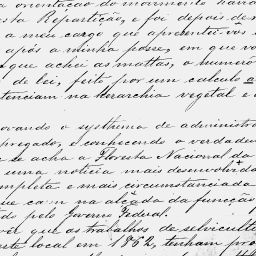 a orientação do movimento
esta Repartição, e foi depois de
a meu cargo que apresentei-vos
após a minha posse, em que vo
que achei as mattas, o numero
de lei, feito por um calculo a
tenciam na hierarchia vegetal e
ovando o systhema de administr
pregado, e conhecendo o verdadei
se acha a Floresta Nacional da
uma noticia mais desenvolvida
mpleta e mais circumstanciada
ue cabem na alçada da funcção
do pelo Governo Federal.
ver que os trabalhos de selvicultu
este local em 1862, tenham pro